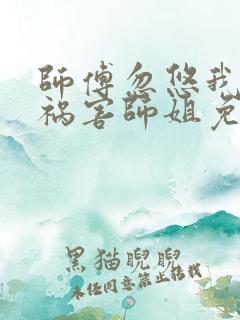 師傅忽悠我
祸害師姐免
黑猫睨睨
未经同意禁止转载